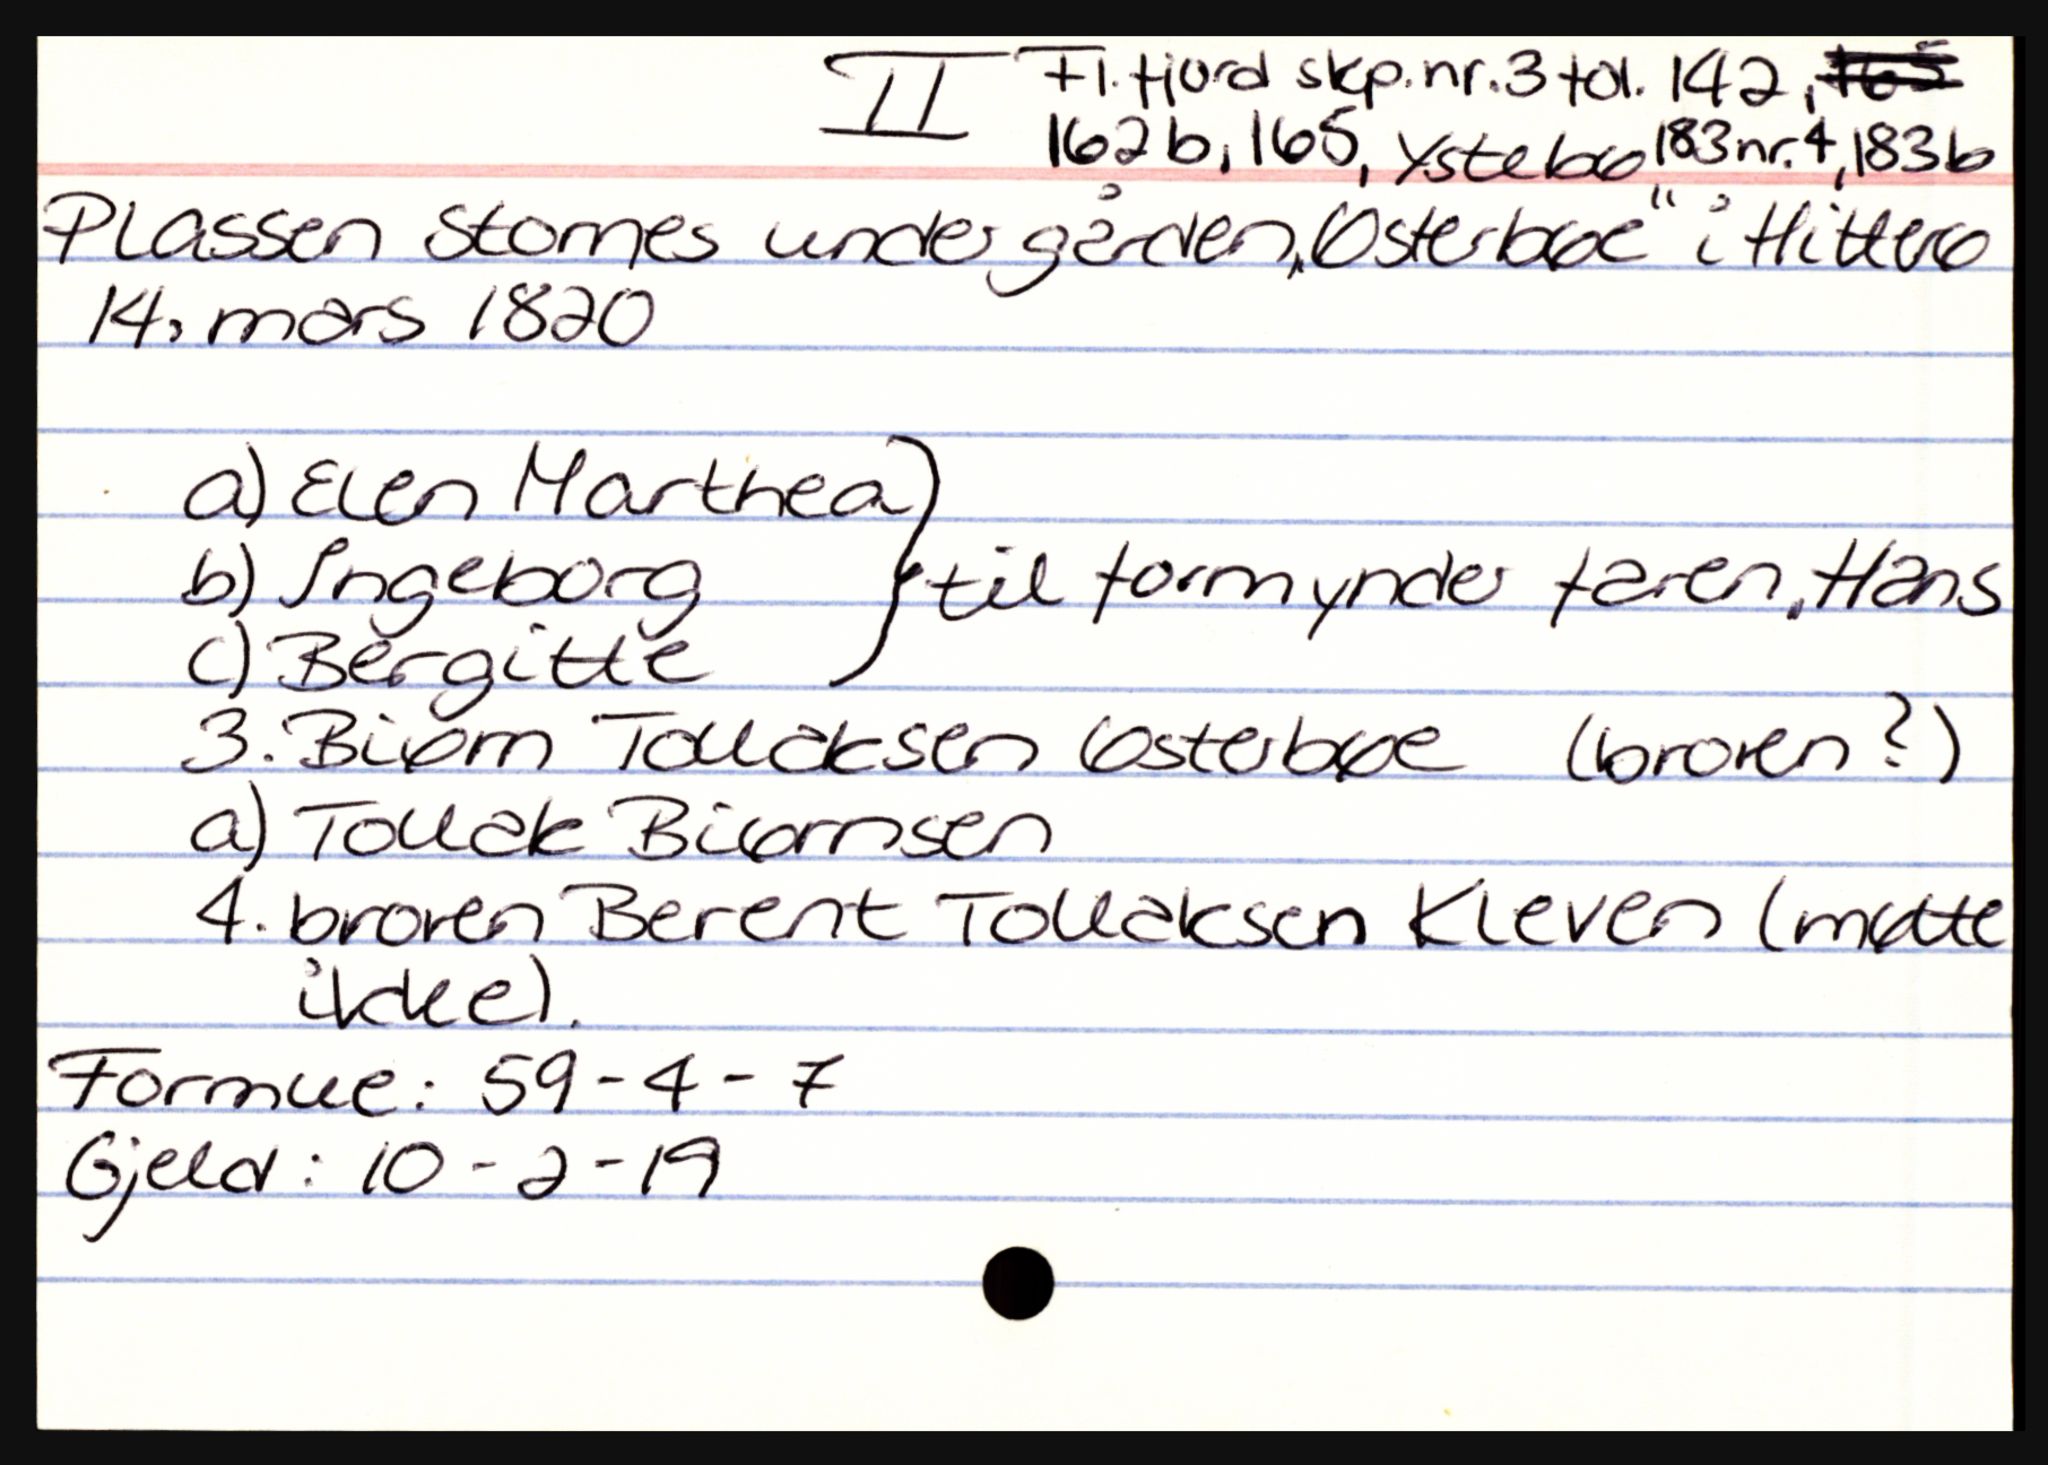 II Fl.fjord skp.nr.3 fol. 142, 165
162b, 165, Ystebø 183nr.4, 183b
Plassen Stornes under gården „Østerbøe“ i Hitterø
14. mars 1820
a) Elen Marthea
b) Ingeborg } til formynder faren, Hans
c) Bergitte
3. Biørn Tollaksen Østerbøe (broren?)
a) Tollak Biørnsen
4. broren Berent Tollaksen Kleven (møtte
ikke).
Formue: 59-4-7
Gjeld: 10-2-19